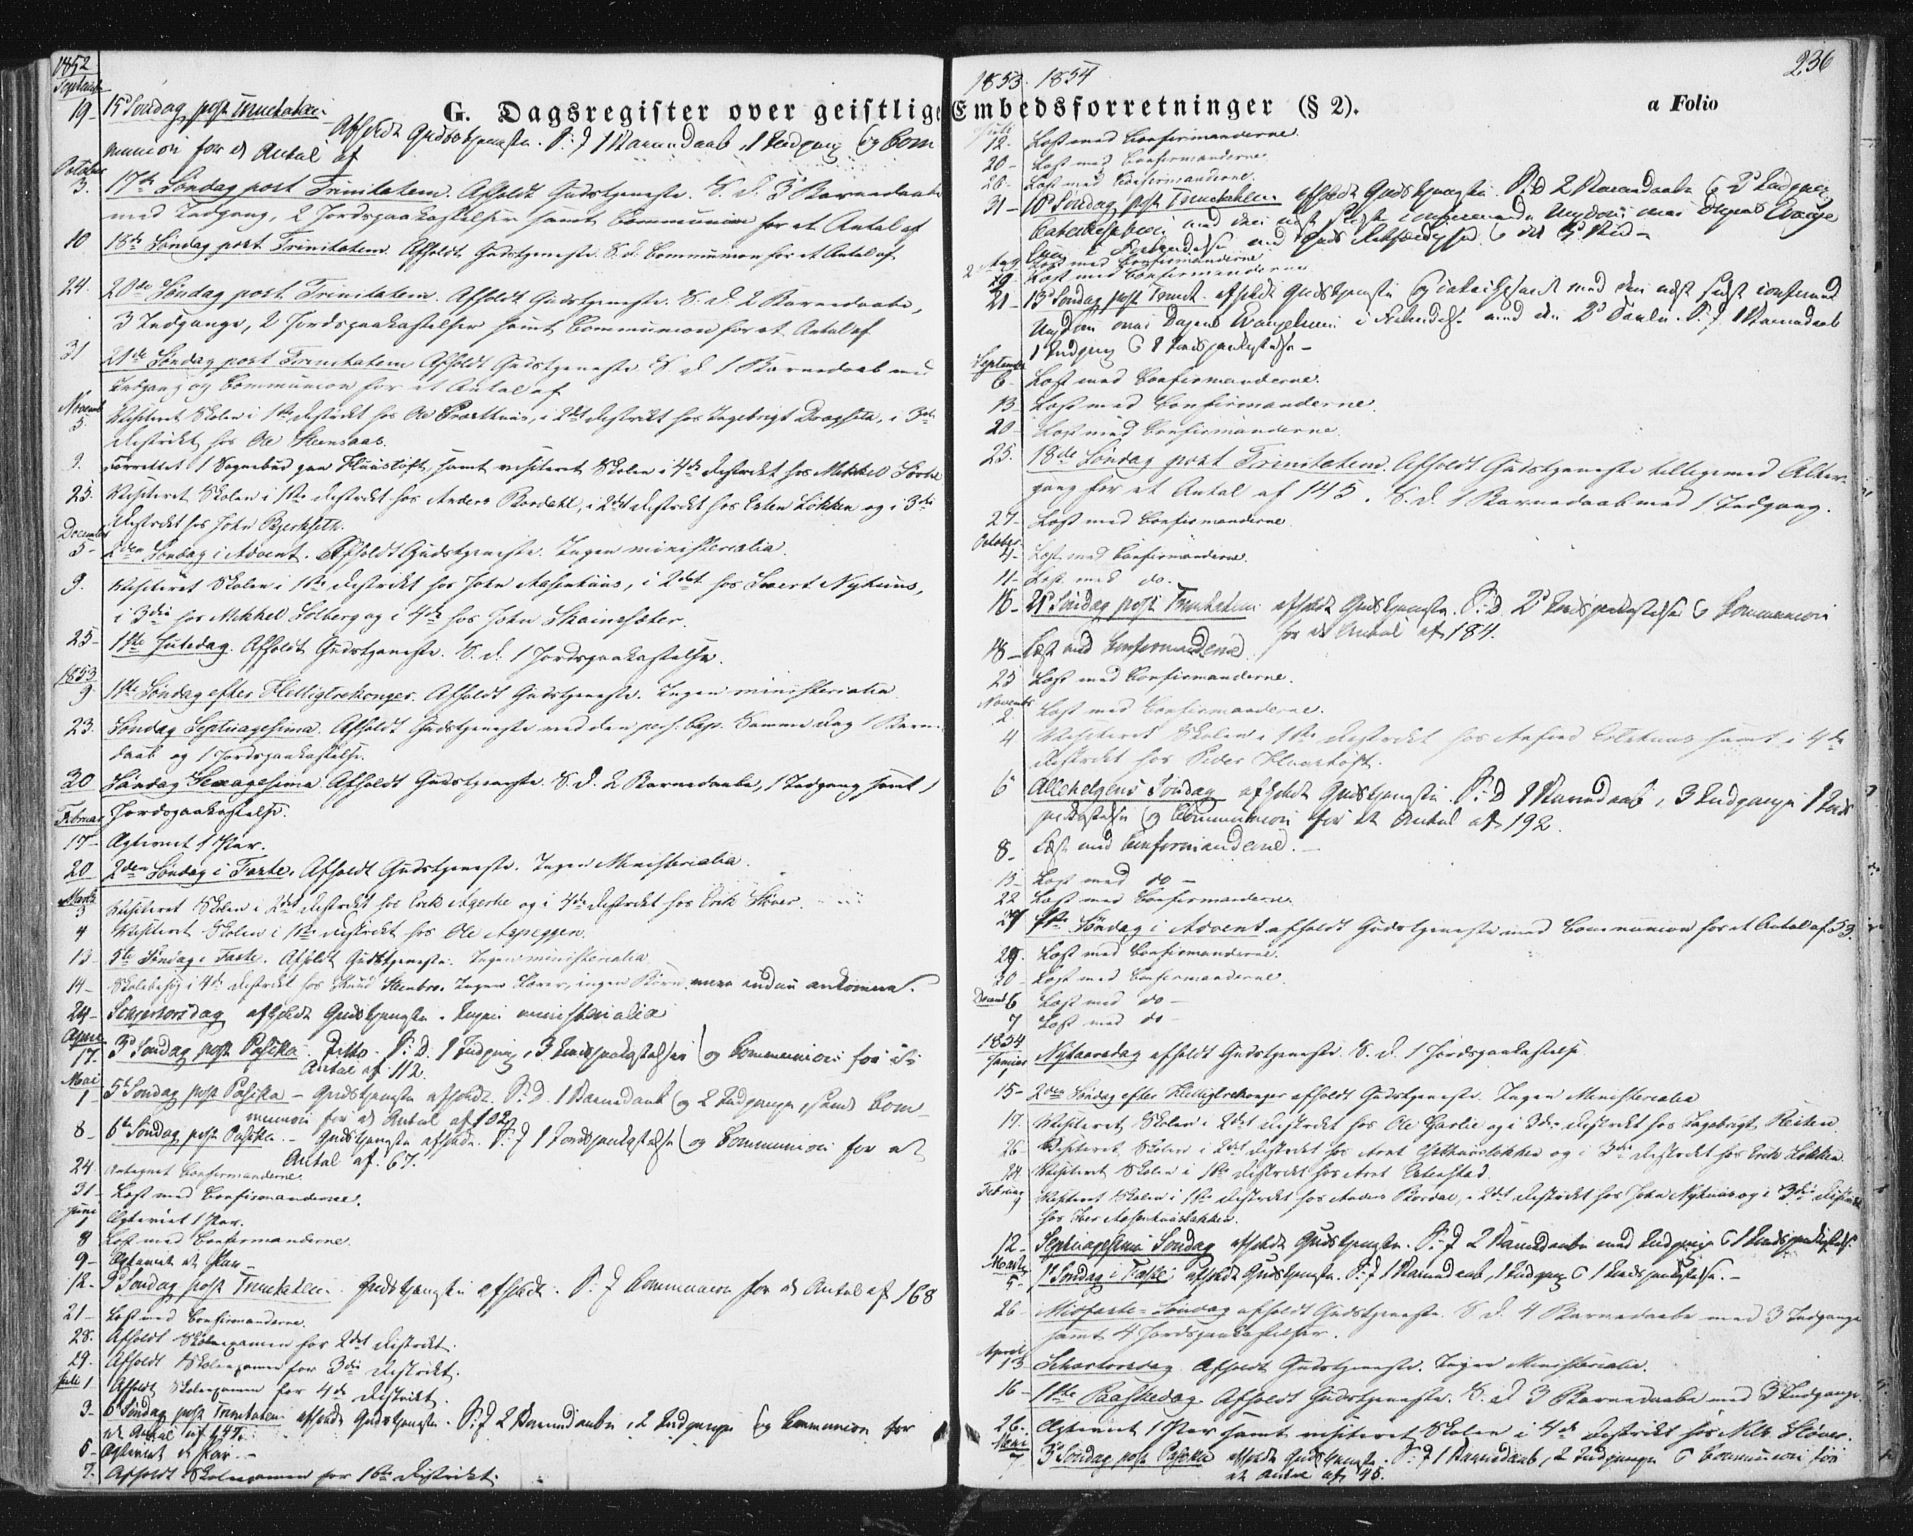 1852
G. Dagsregister over geistlige
September
19 - 15 Søndag post Trinitatem. Afholdt Gudstjeneste. S. D. 1 Barnedaab 1 Indgang og Com
munion for et Antal af
October
3. 17de Søndag post Trinitatem. Afholdt Gudstjeneste. S. d. 3 Barnedaabe
med Indgang, 2 Jordspaakastelser samt Communion for et Antal af
10 18de Søndag post Trinitatem. Afholdt Gudstjeneste. S. d. Communion for et Antal af
24. 20de Søndag post Trinitatem. Afholdt Gudstjeneste. S. d. 2 Barnedaabe,
3 Indgange, 2 Jordspaakastelser samt Communion for et Antal af
31 21de Søndag post Trinitatem Afholdt Gudstjeneste S. d. 1 Barnedaab med
Indgang og Communion for et Antal af
Novemb
5. Visiteret Skolen i 1ste District hos Ole, i 2det District hos Ingebrigt Dragseth, i 3die
District hos Ole Steensaas.
9. Forrettet 1 Sognebud paa samt visiteret Skolen i 4de District hos Mikkel
25. Visiteret Skolen i 1ste District hos Anders Bordahl, i 2det District hos Esten Løkken og i 3die
District hos John Bjerkseth.
December
5 - 2den Søndag i Advent. Afholdt Gudstjeneste. Ingen ministerialia.
9. Visiteret Skolen i 1ste District hos John Aasenhuus, i 2det hos Sivert Nyhuus,
i 3die hos Mikkel Solberg og i 4de hos John
25 - 1ste Juledag. Afholdt Gudstjeneste. S. d. 1 Jordspaakastelse.
1853
9. 1ste Søndag efter Helligtrekonger. Afholdt Gudstjeneste. Ingen ministerialia
23. Søndag Septuagesima. Afholdt Gudstjeneste ved den pers. Cap. Samme Dag 1 Barne
daab og 1 Jordspaakastelse.
30 Søndag Sexagesima Afholdt Gudstjeneste. S. d. 2 Barnedaabe, 1 Indgang samt 1
Jordspaakastelse.
Februar
17 - Ægteviet 1 Par.
20 2den Søndag i Faste. Afholdt Gudstjeneste. Ingen Ministerialia.
Marts
3 Visiteret Skolen i 2det District hos Erik og i 4de District hos Erik
4 Visiteret Skolen i 1ste District hos Ole Aspeggen.
13 - 5te Søndag i Faste. Afholdt Gudstjeneste. Ingen ministerialia
14 - Skolebesøg i 4de District hos Knud Steenbro. Ingen Lærer, ingen Børn vare endnu ankomne.
24 - Schjertorsdag afholdt Gudstjeneste. Ingen ministerialia
April
17. 3die Søndag post Paaska. Ditto. S. D. 1 Indgang, 3 Jordspaakastelser og Communion for et
Antal af 112.
Mai
1 - 5te Søndag post Paaska - Gudstjeneste afholdt. S. D. 1 Barnedaab og 2 Indgange, samt Com-
munion for et Antal af 102
8 - 6te Søndag post Paaska. - Gudstjeneste afholdt. S. D. 1 Jordspaakastelse og Communion for et
Antal af 67.
24. Antegnet Confirmanderne.
31 - Læst med Confirmanderne.
Juni
1 Ægteviet 1 Par.
8 Læst med Confirmanderne.
9 - Ægteviet et Par -
12 - 3die Søndag post Trinitatem. Gudstjeneste afholdt. S. D. Communion for et Antal af 168
21 - Læst med Confirmanderne.
28. Afholdt Skoleexamen for 2det District.
29. Afholdt Skoleexamen for 3die District.
Juli 1 Afholdt Skoleexamen for 4de District.
3 - 6 Søndag post Trinitatem afholdt Gudstjeneste. S. D. 2 Barnedaabe, 2 Indgange og Communion for
et Antal af 147.
6 - Ægteviet et Par. -
7. Afholdt Skoleexamen for 1ste District.
236
1853. 1854
Embedsforretninger (§ 2).
a Folio
Juli
12 - Læst med Confirmanderne.
20 - Læst med Confirmanderne.
26 - Læst med Confirmanderne.
31 - 10 Søndag post Trinitatem afholdt Gudstjeneste. S. D. 2 Barnedaabe 2 Indgange
19 Læst med Confirmanderne
21 - 13 Søndag post Trinit. afholdt Gudstjeneste og catechiseret med den næst sidst confirmerede
Ungdom over Dagens Evangelium S. D. 1 Barnedaab
1 Indgang & 1 Jordspaakastelse -
September
6 - Læst med Confirmanderne.
13 - Læst med Confirmanderne.
20 - Læst med Confirmanderne.
25. 18de Søndag post Trinitatem. Afholdt Gudstjeneste tilligemed Alter
gang for et Antal af 145. S. d. 1 Barnedaab med 1 Indgang.
27 - Læst med Confirmanderne.
October
4 - Læst med Confirmanderne.
11 - Læst med do.
16 - 21 Søndag post Trinitatem afholdt Gudstjeneste. S. D. 2 Jordspaakastelser & Communion
for et Antal af 184.
18 - Læst med Confirmanderne
25 Læst med Confirmanderne.
Novemb
2 Læst med Confirmanderne.
4 Visiteret Skolen i 1ste District hos samt i 4de
District hos Peder
6 Allehelgens Søndag afholdt Gudstjeneste. S. D. 1 Barnedaab, 3 Indgange 1 Jords
paakastelse og Communion for et Antal af 192.
8 - Læst med Confirmanderne. -
15 - Læst med do -
22 Læst med Confirmanderne
27 1ste Søndag i Advent afholdt Gudstjeneste med Communion for et Antal af 53.
29. Læst med Confirmanderne.
30 Læst med Confirmanderne.
Decemb 6 Læst med do -
7 Læst med do -
1854
Januar Nytaarsdag afholdt Gudstjeneste. S. d. 1 Jordspaakastelse
15 - 2den Søndag efter Helligtrekonger afholdt Gudstjeneste. Ingen Ministerialia
17. Visiteret Skolen i 2det District hos Ole og i 3die District hos Ingebrigt Reiten.
26 - Visiteret Skolen i 2det District hos Arnt og i 3die District hos Erik Løkken
24 Visiteret Skolen i 1ste District hos Arnt
Februar
9 Visiteret Skolen i 1ste District hos Anders Bordal, i 2det District hos John Nyhuus og i 3die District
hos Iver Aasenhuusløkken.
12 - Septuagesima Søndag afholdt Gudstjeneste. S. D. 2 Barnedaabe med Indgang & 1 Jordspaakastelse
Marts
5 - 1 Søndag i Faste, afholdt Gudstjeneste. S. D. 1 Barnedaab, 1 Indgang & 1 Jordspaakastelse. -
26 - Midfaste-Søndag afholdt Gudstjeneste. S. d. 4 Barnedaabe med 3 Indgange
samt 4 Jordspaakastelser.
April
13 Schertorsdag Afholdt Gudstjeneste. Ingen Ministerialia.
16 - 1ste Paaskedag Afholdt Gudstjeneste. S. d. 3 Barnedaabe med 3 Indgange.
26. Ægteviet 1 Par samt visiteret Skolen i 4de District hos Nils
Mai
7 3die Søndag post Paaska afholdt Gudstjeneste. S. D. 1 Barnedaab, 2 Indgange & Communion for
et Antal af 45.